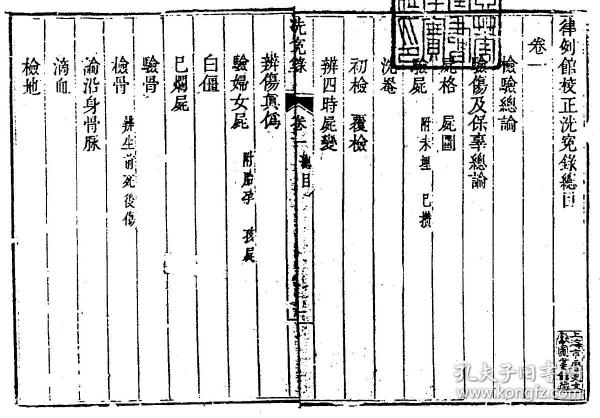 律例館校正洗冤錄總目
卷一
檢驗總論
驗傷及保辜總論
屍格 屍圖
驗屍 附未埋 已攢
洗罨
初檢 覆檢
辨四時屍變
洗冤錄 卷一 總目
辨傷真偽
驗婦女屍 附胎孕 孩屍
白僵
已爛屍
驗骨
檢骨 辨生前死後傷
論沿身骨脉
滴血
檢地
孔夫子旧书网
www.kongfz.com